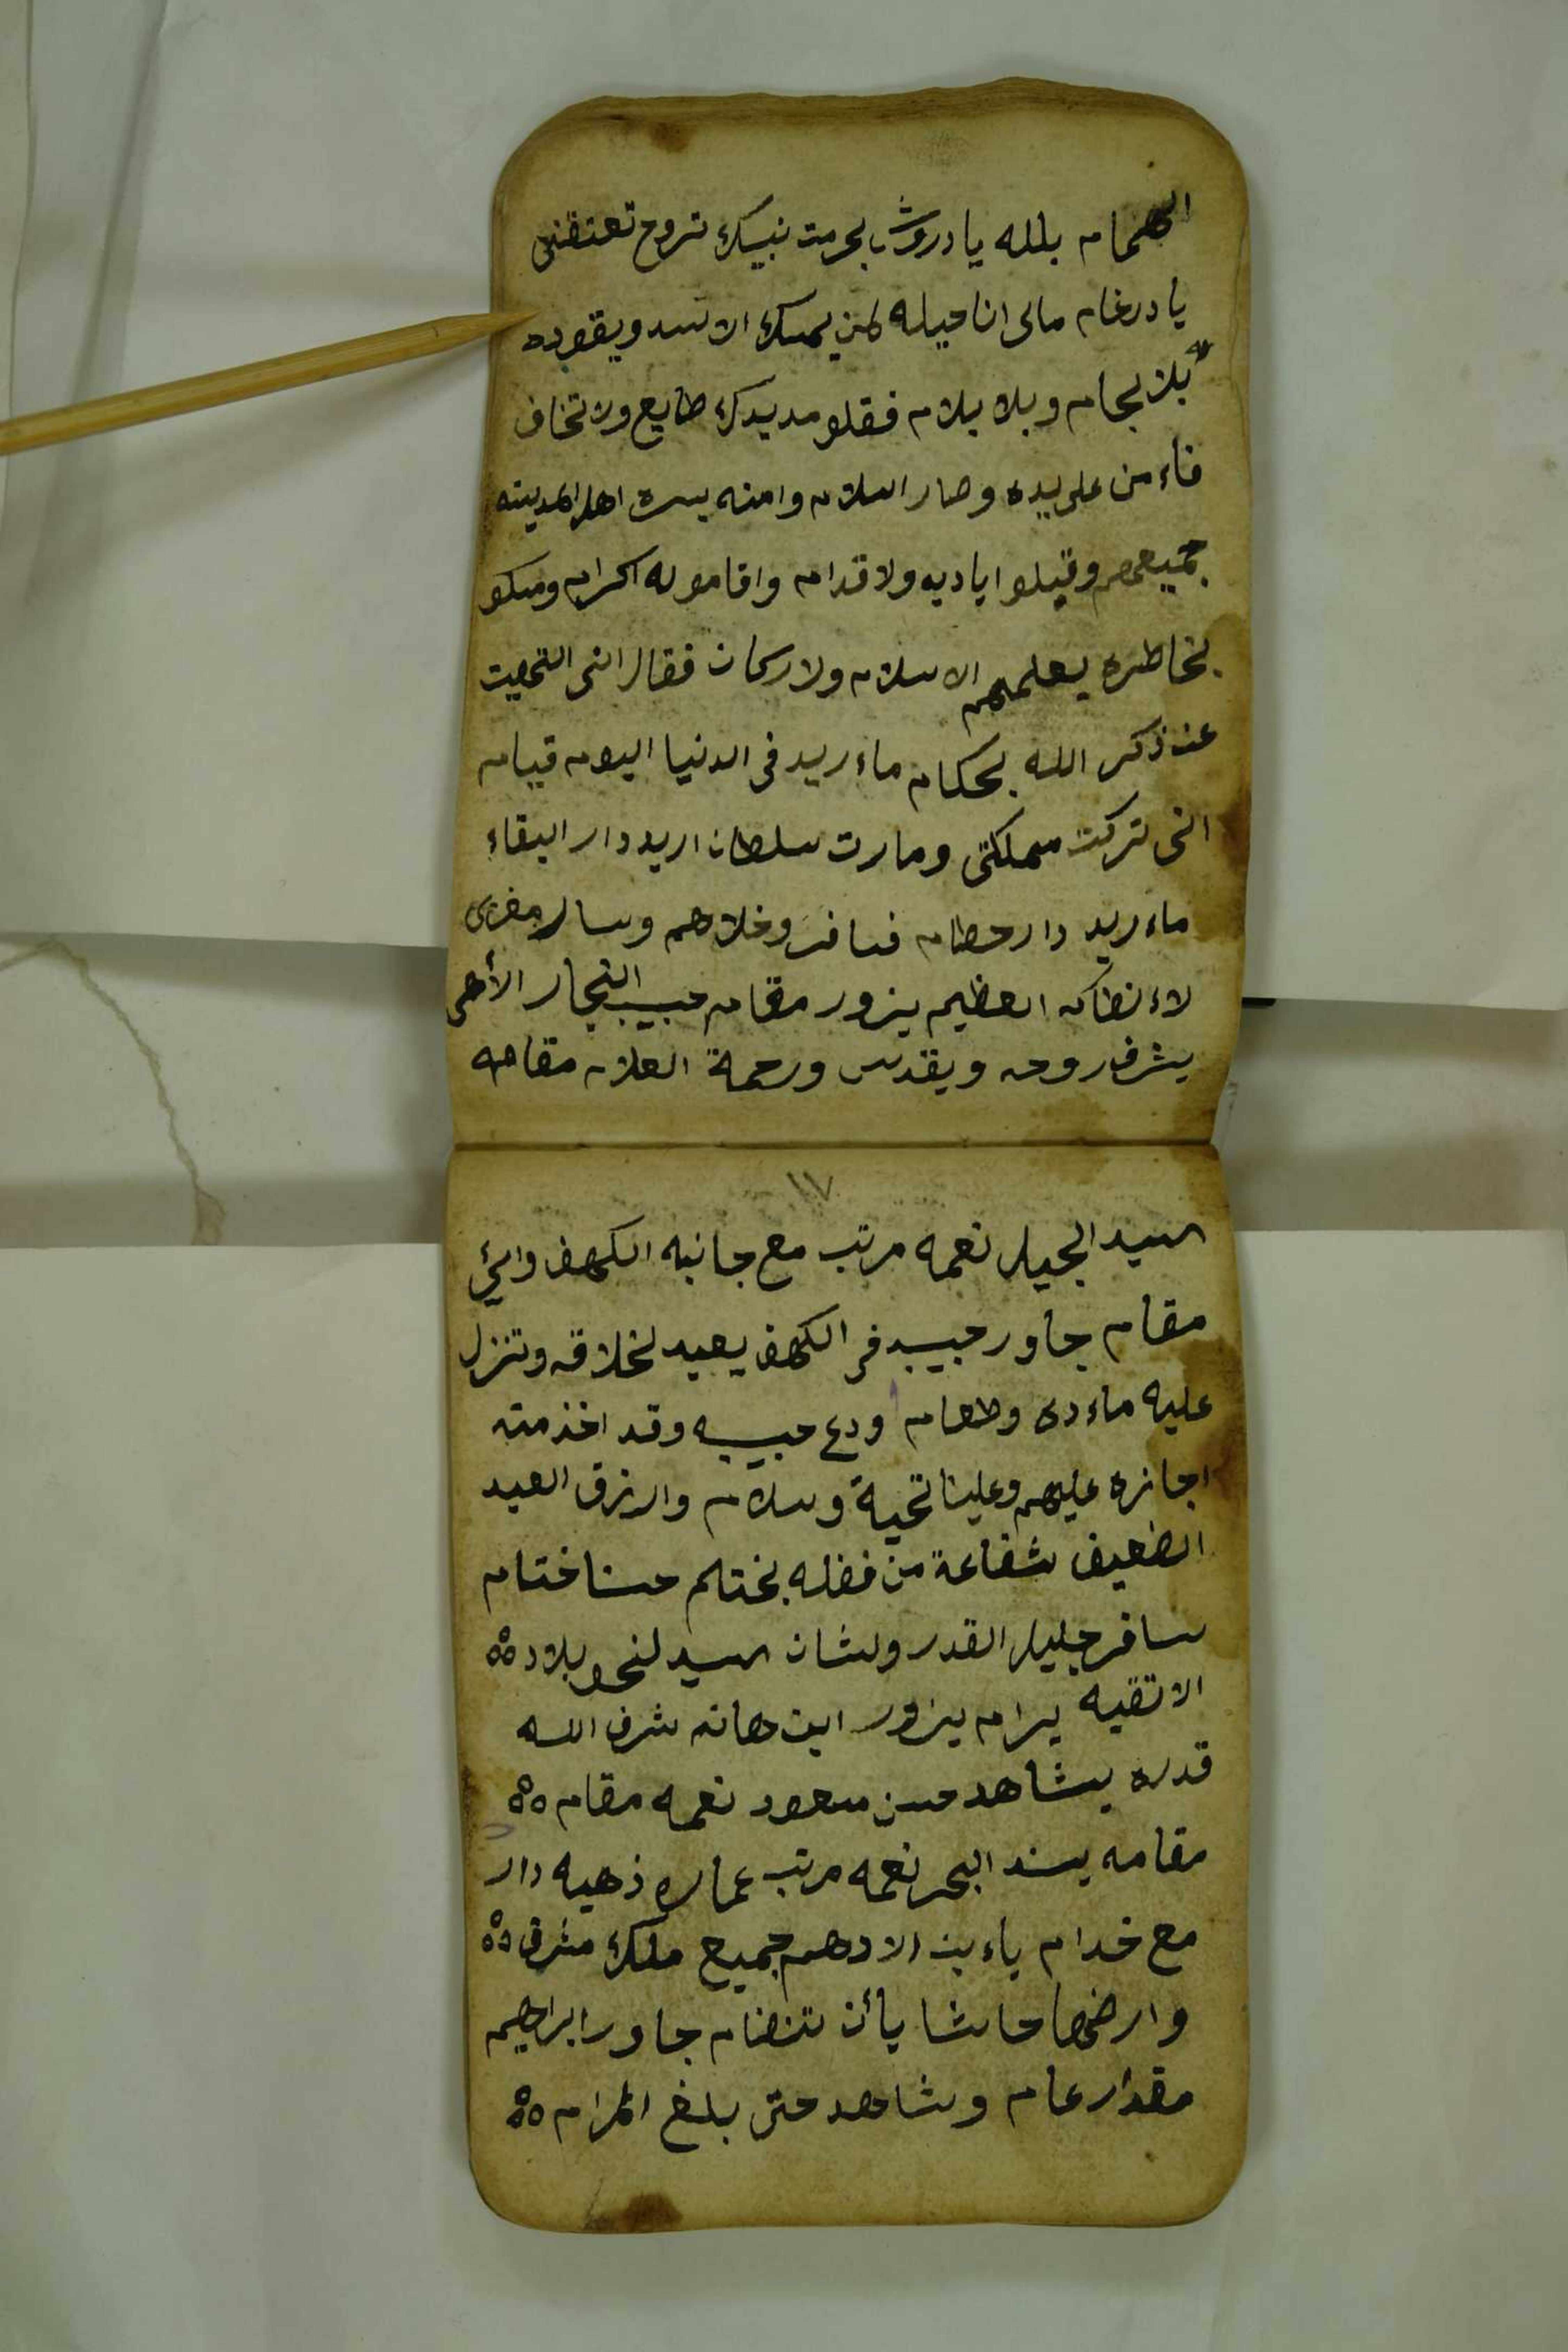 الهمام بلله يا دروش بحرمت نبيك تروح تعتقني
يا درغام مالى انا حيله لمن يمسك الاسد ويقوده
بلا لجام وبلا بلام فقلو مد يدك طايع ولا تخاف
فاء من على يده وصار اسلام وامنه يسره اهل المدينه
جميعهم وقبلوا اياديه ولاقدام واقامو له اكرام ومسكو
بخاطره يعلمهم الاسلام ولاركان فقال انى التهيت
عن ذكر الله بحكام ماء ريد فى الدنيا اليوم قيام
انى تركت مملكتى وصارت سلطان اريد دار البقاء
ماء ريد دار حطام فسافر وخلاهم وسار مغربى
لاء نطاكه العظيم يزور مقام حبيب النجار الأهى
يشرف روحه ويقدس ورحمة العلام مقامه
١٧
السيد الجيل نعمه مرتب مع جانبه الكهف
مقام جاور حبيب فى الكهف يعبد لخلاقه وتنزل
عليه ماء دى وطعام ودع حبيب وقد اخذ منه
اجازه عليهم وعلينا تحية وسلام وارزق العبد
الضعيف شفاعة من فضله بختم حسنا ختام
سافر جليل القدر ولشان السيد لنحو بلاد
الاتقيه يرام يزور ابن هانه شرف الله
قدره يشاهد حسن سعود نعمه مقام
مقامه يسند البحر نعمه مرتب عماره ذهبه دار
مع خدام ياء بن الادهم جميع ملك مشرق
وارضها حاشا يأن تنضام جاور ابراهيم
مقدار عام وشاهد حتى بلغ المرام